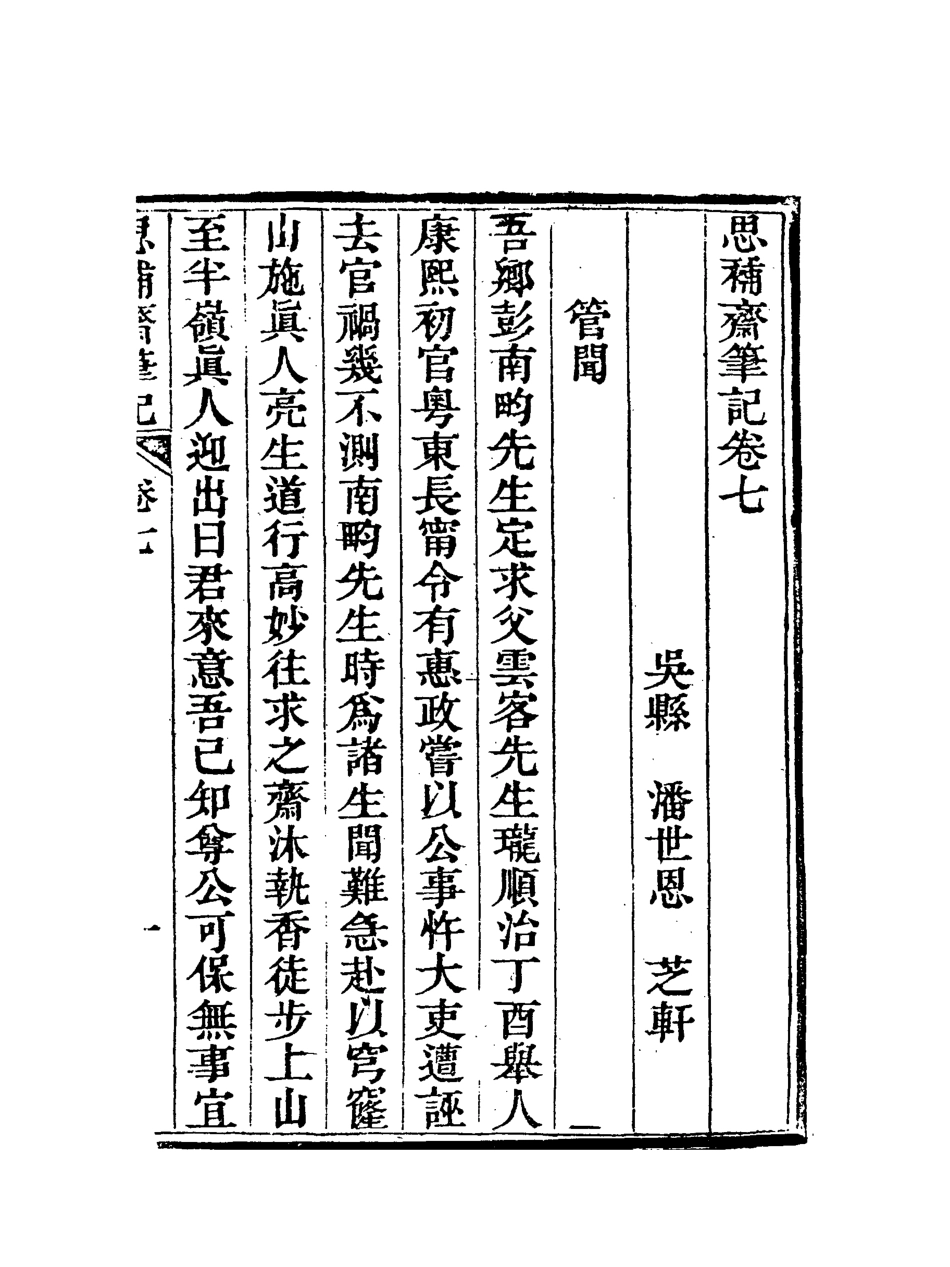 思補齋筆記卷七
吳縣　潘世恩　芝軒
管聞
吾鄉彭南畇先生定求父雲客先生瓏順治丁酉舉人
康熙初官粵東長甯令有惠政嘗以公事忤大吏遭誣
去官禍幾不測南畇先生時爲諸生聞難急赴以穹窿
山施眞人亮生道行高妙往求之齋沐執香徒步上山
至半嶺眞人迎出曰君來意吾已知尊公可保無事宜
思補齋筆記　卷七　一